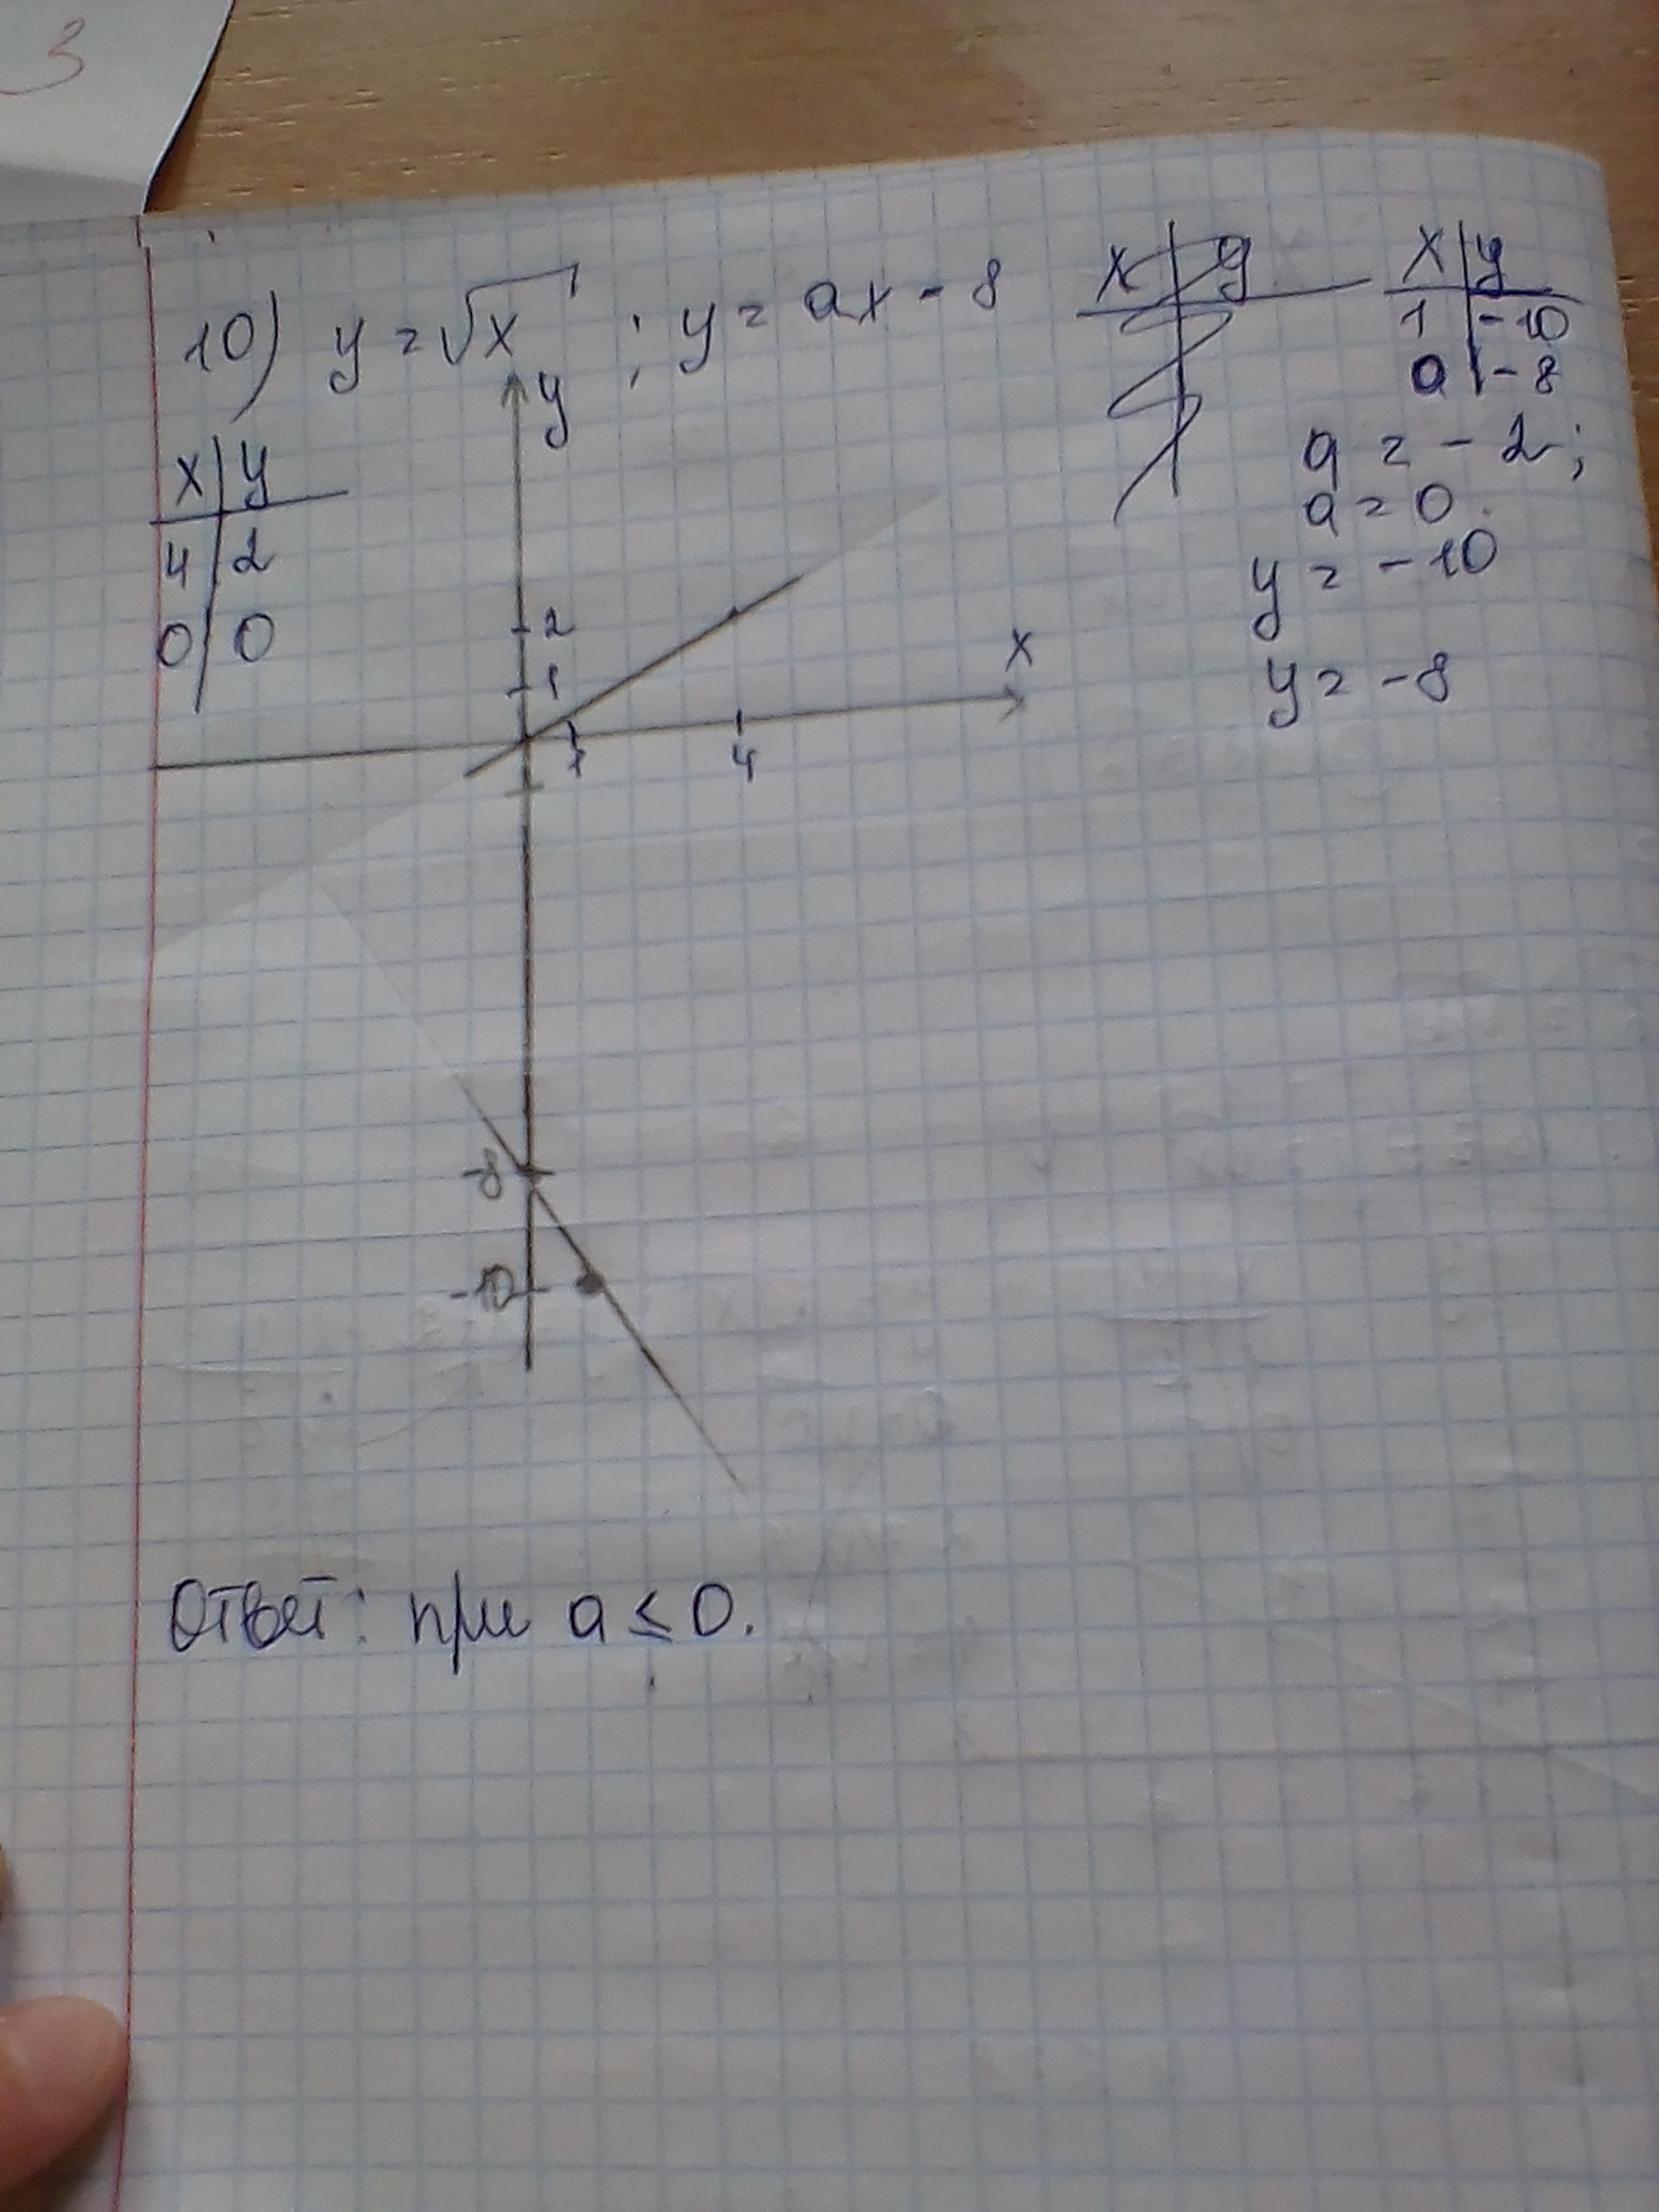 3
10) y = √x ; y = ax - 8
x | y
4 | 2
0 | 0
x | y
x | y
1 | -10
0 | -8
a = -2;
a = 0.
y = -10
y = -8
y
2
1
x
1
4
-8
-10
Ответ: при a ≤ 0.